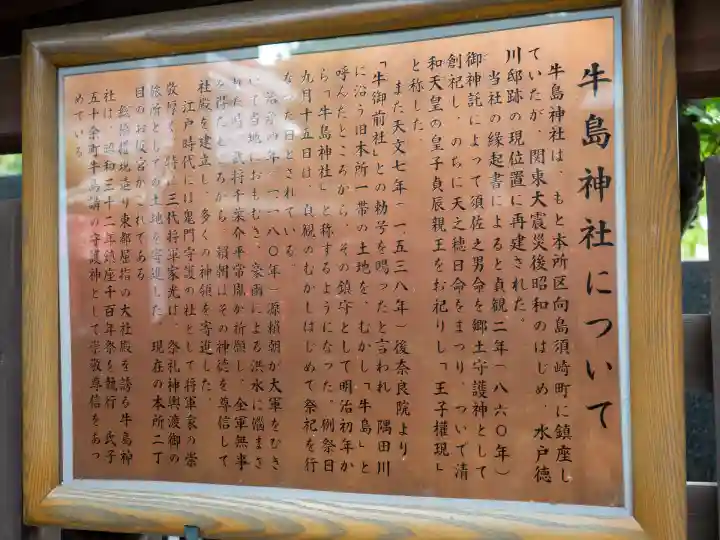 牛島神社について
牛島神社は、もと本所区向島須崎町に鎮座し
ていたが、関東大震災後昭和のはじめ、水戸徳
川邸跡の現位置に再建された。
当社の縁起書によると貞観二年(八六〇年)
御神託によって須佐之男命を郷土守護神として
創祀し、のちに天之穂日命をまつり、ついで清
和天皇の皇子貞辰親王をお祀りし「王子権現」
と称した。
また天文七年(一五三八年)後奈良院より
「牛御前社」との勅号を賜ったと言われ 隅田川
に沿う旧本所一帯の土地を、むかし「牛島」と
呼んだところから、その鎮守として明治初年か
ら「牛島神社」と称するようになった。例祭日
九月十五日は、貞観のむかしはじめて祭祀を行
なった日とされている。
治承四年(一一八〇年)源頼朝が大軍をひき
いて当地におもむき、豪雨による洪水に悩まさ
れた時、武将千葉介平常胤が祈願し、全軍無事
み得たところから、頼朝はその神徳を尊信して
社殿を建立し、多くの神領を寄進した。
江戸時代には鬼門守護の社として将軍家の崇
敬厚く、特に三代将軍家光は、祭礼神輿渡御の
旅所としての土地を寄進した。現在の本所二丁
目のお仮宮がこれである
総桧権現造り東都屈指の大社殿を誇る牛島神
社は、昭和三十二年鎮座千百年祭を執行 氏子
五十余町牛島講の守護神として崇敬尊信をあつ
めている